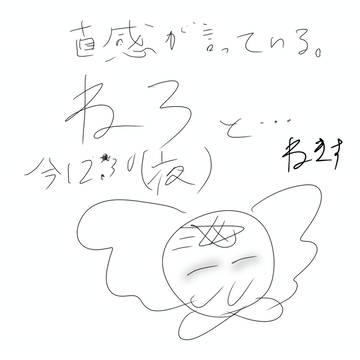 直感が言っている。
ねろ と…
今12:30(夜)
ねます